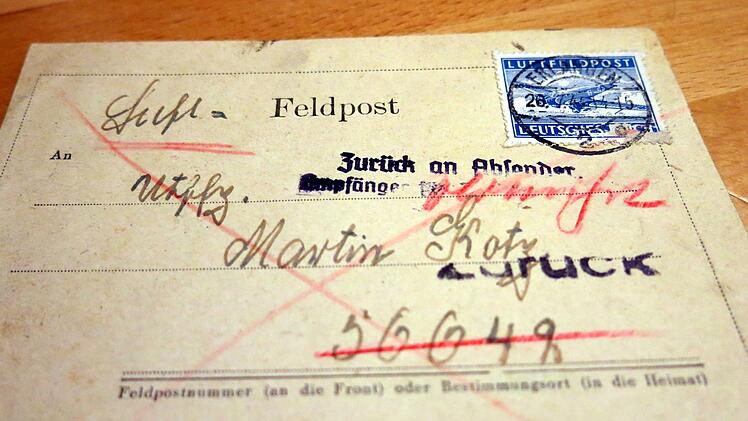 LUFTFELDPOST
ERLANGEN
DEUTSCHES REICH
Luft= Feldpost
An
Zurück an Absender.
Empfänger
Uffz.
Martin Kotz
Zurück
56649
Feldpostnummer (an die Front) oder Bestimmungsort (in die Heimat)